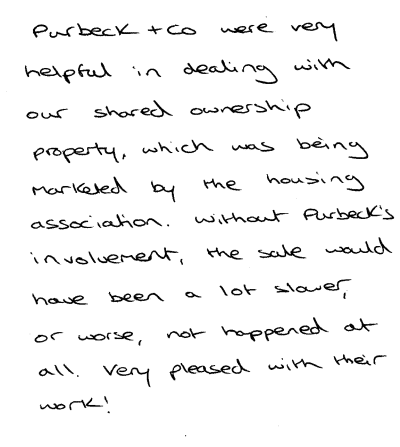 Purbeck + Co were very
helpful in dealing with
our shared ownership
property, which was being
marketed by the housing
association. Without Purbeck's
involvement, the sale would
have been a lot slower,
or worse, not happened at
all. Very pleased with their
work!